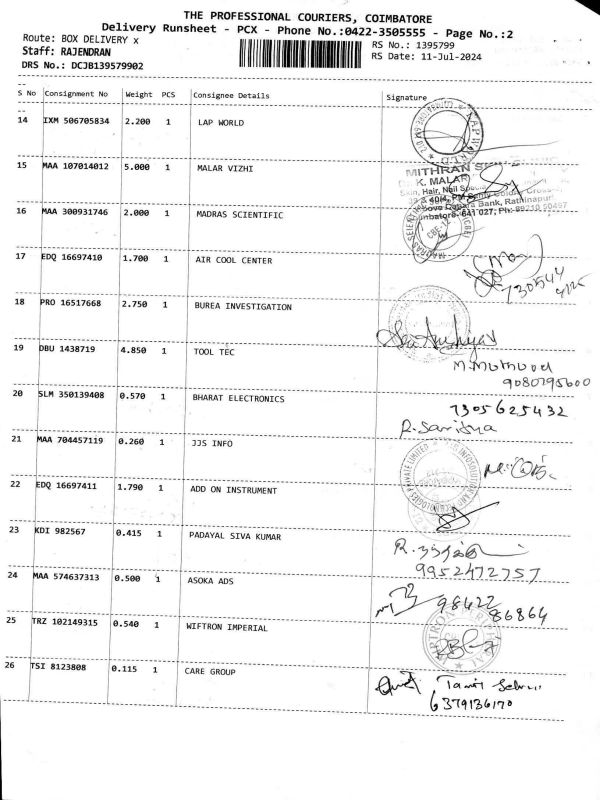 THE PROFESSIONAL COURIERS, COIMBATORE
Delivery Runsheet - PCX - Phone No.:0422-3505555 - Page No.:2
Route: BOX DELIVERY x
RS No.: 1395799
Staff: RAJENDRAN
RS Date: 11-Jul-2024
DRS No.: DCJB139579902
S No Consignment No Weight PCS Consignee Details Signature
14 IXM 506705834 2.200 1 LAP WORLD
15 MAA 107014012 5.000 1 MALAR VIZHI
MITHRAN
K. MALAR
Skin, Hair, Nail
16 MAA 300931746 2.000 1 MADRAS SCIENTIFIC
17 EDQ 16697410 1.700 1 AIR COOL CENTER
18 PRO 16517668 2.750 1 BUREA INVESTIGATION
19 DBU 1438719 4.850 1 TOOL TEC
M. Muthood
9080795600
20 SLM 350139408 0.570 1 BHARAT ELECTRONICS
7305625432
R. Sanidya
21 MAA 704457119 0.260 1 JJS INFO
22 EDQ 16697411 1.790 1 ADD ON INSTRUMENT
23 KDI 982567 0.415 1 PADAYAL SIVA KUMAR
9952472757
24 MAA 574637313 0.500 1 ASOKA ADS
98422
86864
25 TRZ 102149315 0.540 1 WIFTRON IMPERIAL
26 TSI 8123808 0.115 1 CARE GROUP
Tamil Selvi
6379136170